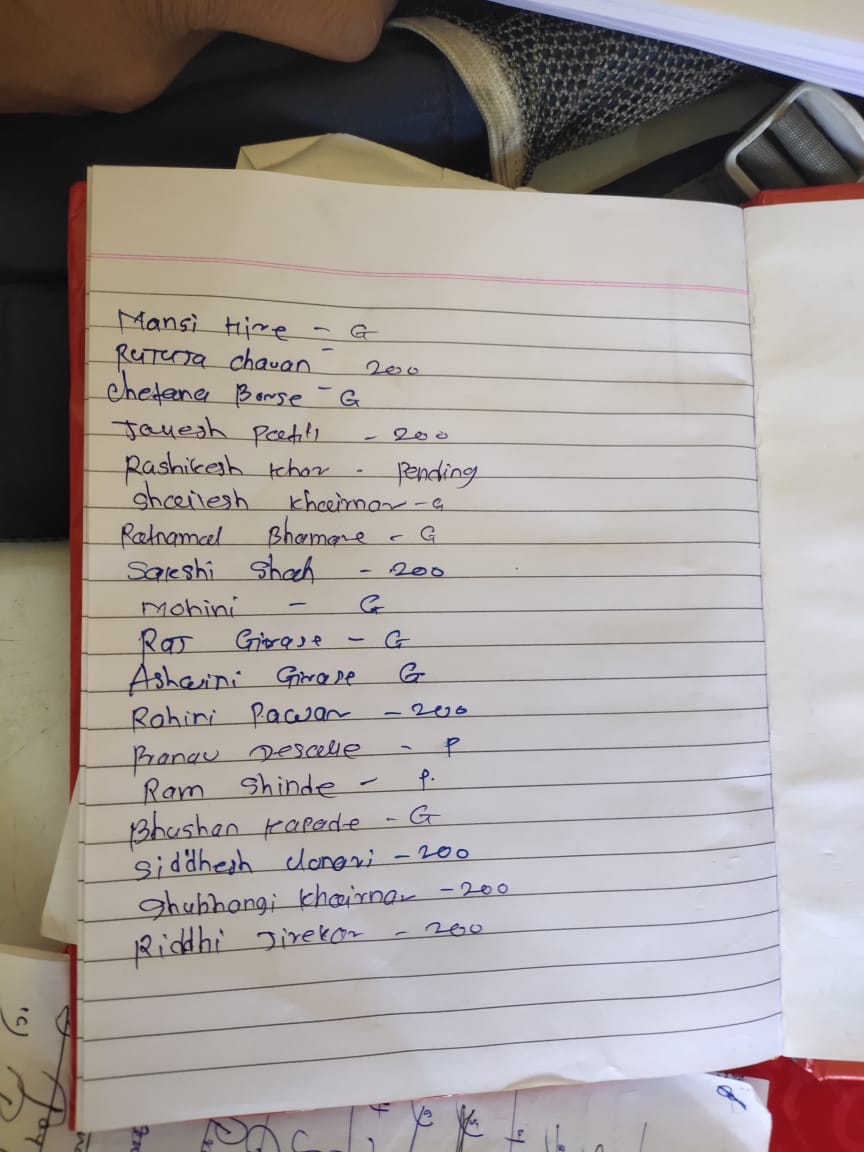 Mansi Hire - G
Rutuja chavan - 200
Chetana Borse - G
Jayesh Patil - 200
Rashikesh Khor - Pending
Shailesh Khairnar - G
Ratnamal Bhamare - G
Sakshi Shah - 200
Mohini - G
Raj Girase - G
Ashwini Girase G
Rohini Pawar - 200
Pranav Desale - P
Ram Shinde - P.
Bhushan Kapade - G
Siddhesh - 200
Shubhangi Khairnar - 200
Riddhi Jirekar - 200